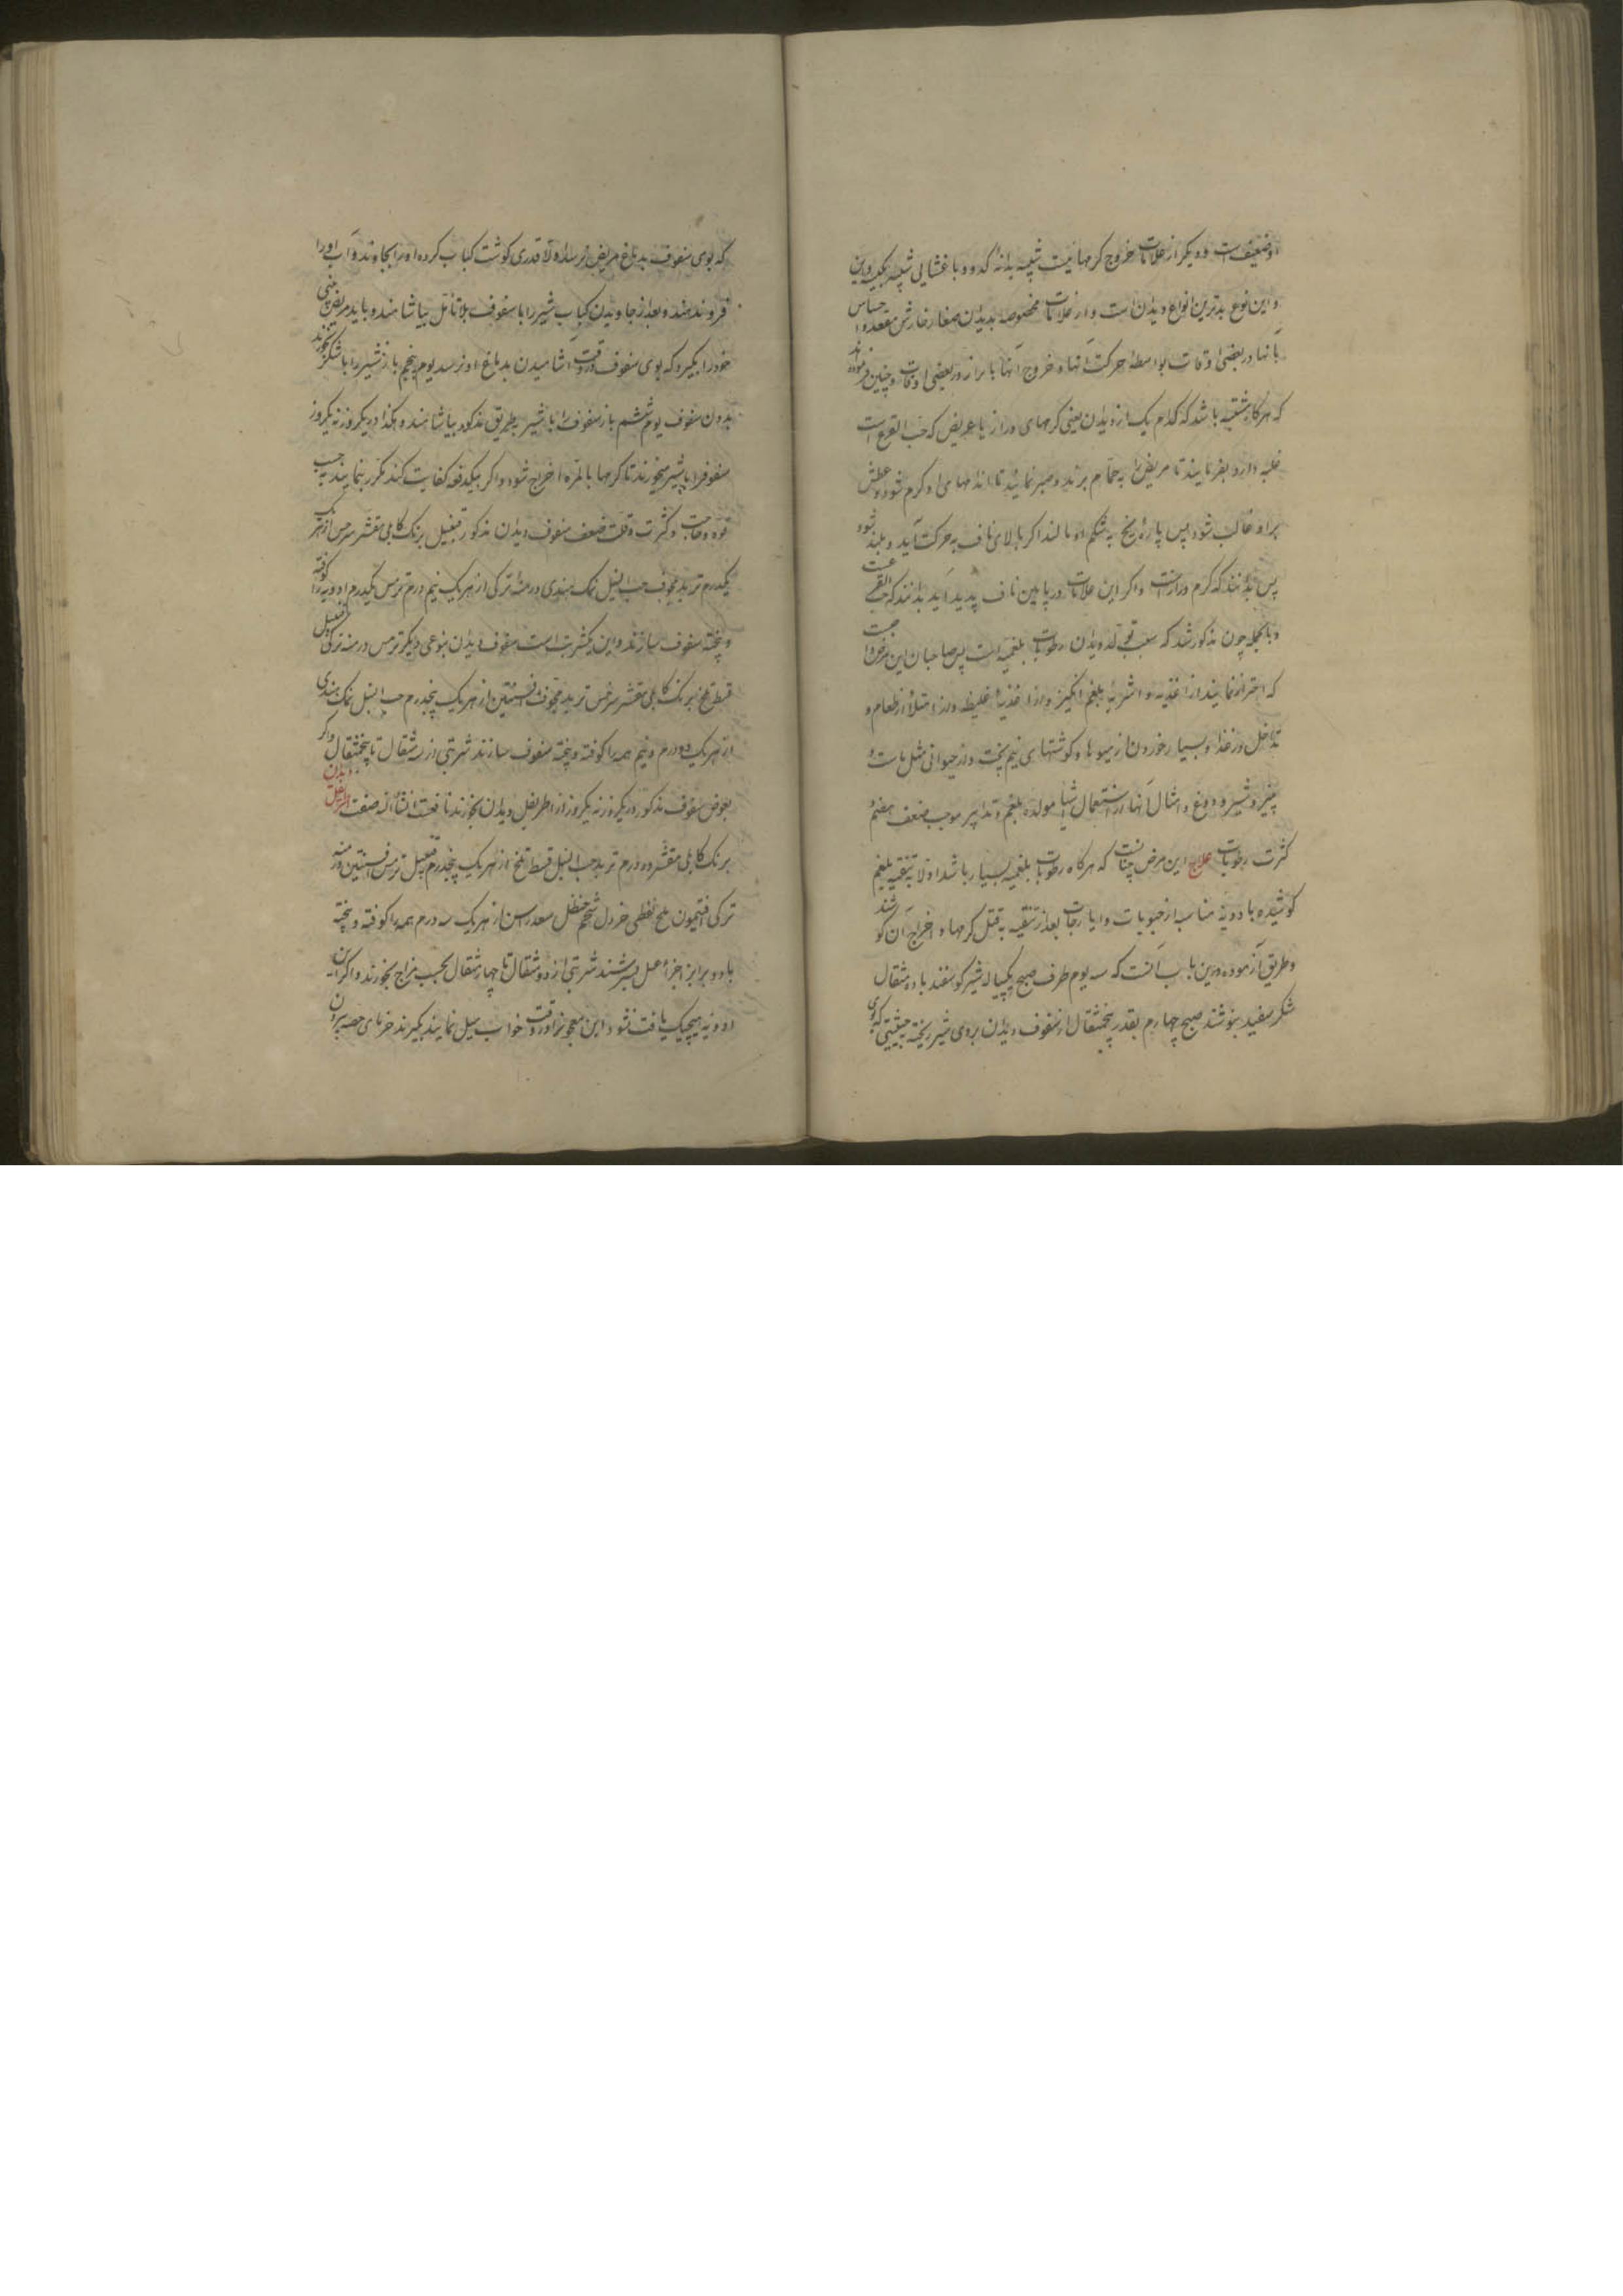 او ضعیفست و دیگر از علامات خروج کرمهائیست شبیه بدانهٔ کدو و با غشائی شبیه بکیسه و این
و این نوع بدترین انواع دیدان است و از علامات مخصوصه بدیدان صغار خارش مقعد و احساس
بآنها در بعضی اوقات بواسطهٔ حرکت آنها و خروج آنها با براز در بعضی اوقات و چنین فرموده‌اند
که هرگاه مشتبه باشد که کدام یک از دیدان یعنی کرمهای دراز یا عریض که حب القرع است
غلبه دارد بفرمایند تا مریض را به حمام برند و صبر نمائید تا اندامهای او گرم شود و عطش
بر او غالب شود پس پاره یخ به شکم او مالند اگر بالای ناف به حرکت آید و بلند شود
پس بدانند که کرم درازست و اگر این علامات در پایین ناف پدید آید بدانند که حب القرعست
و بالجمله چون مذکور شد که سبب تولد دیدان رطوبات بلغمیه است پس صاحبان این مرض را واجبست
که احتراز نمایند از اغذیه و اشربهٔ بلغم انگیز و از اغذیهٔ غلیظه و از امتلأ از طعام و
تداخل در غذا و بسیار خوردن از میوها و گوشتهای نیم پخت و از حیوانی مثل ماست و
پنیر و شیر و دوغ و امثال آنها از استعمال اشیأ مولده بلغم و تدابیر موجب ضعف هضم و
کثرت رطوبات علاج این مرض چنانست که هرگاه رطوبات بلغمیه بسیار باشد اولا به تنقیه بلغم
کوشیده با دویه مناسب از حبوبات و ایارجات بعد از تنقیه به قتل کرمها و اخراج آن کوشند
و طریق آزموده درین باب آنست که سه یوم طرف صبح یکپیاله شیر گوسفند با ده مثقال
شکر سفید بنوشند صبح چهارم بقدر پنجمثقال از سفوف دیدان بروی شیر ریخته بحیثیتی که بوی
که بوی سفوف بدماغ مریض نرسد اولا قدری گوشت کباب کرده او را بجاوند و آب او را
فرو ندهند و بعد از جاویدن کباب شیر را با سفوف بلا تأمل بیاشامند و باید مریض بینی
خود را بگیرد که بوی سفوف در وقت آشامیدن بدماغ او نرسد یوم پنجم باز شیر را با شکر بخورند
بدون سفوف یوم ششم باز سفوف را با شیر بطریق مذکور بیاشامند و هکذا دیگر روز نه یکروز
سفوفرا با شیر میخورند تا کرمها بالمره اخراج شود و اگر بیکدفعه کفایت نکند مکرر بنمایند به حسب
قوه و حاجت و کثرت و قلت ضعف سفوف دیدان مذکور قنبیل برنک کابلی مقشر سرخس از هریک
یکدرم تربد مجوف حب النیل نمک هندی درمنهٔ ترکی از هریک نیم درم ترمس یکدرم ادویه را کوفته
و پخته سفوف سازند و این یکشربت است سفوف دیدان بنوعی دیگر ترمس درمنه ترکی قنبیل
قسط تلخ برنک کابلی مقشر سرخس تربد مجوف افسنتین از هریک پنجدرم حب النیل نمک هندی
از هریک دو درم و نیم همه را کوفته و پخته سفوف سازند شربتی از سه مثقال تا پنجمثقال و اگر
بعوض سفوف مذکور در یکروز نه یکروز از اطریفل دیدان بخورند نافعست انشأ الله صفت اطریفل دیدان
برنک کابلی مقشر ده درم تربد حب النیل قسط تلخ از هریک پنجدرم قنبیل ترمس افسنتین درمنه
ترکی افتیمون ملح نفطی خردل شحم حنظل سعد راسن از هریک سه درم همه را کوفته و پخته
با دو برابر اجزاء عسل بسرشند شربتی از دو مثقال تا چهار مثقال بحسب مزاج بخورند و اگر این
ادویه هیچیک یافت نشود این معجونرا در وقت خواب میل نمایند بگیرند خرمای حصه بیرون